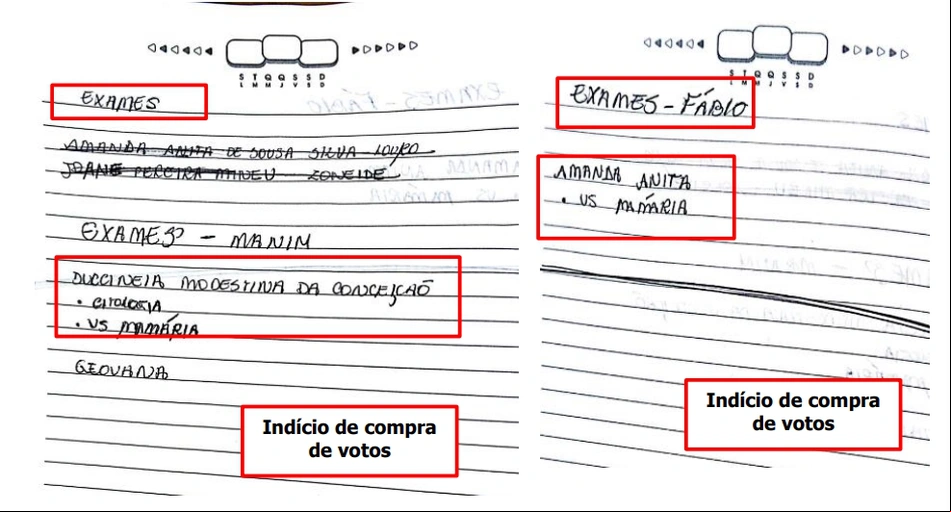 S T Q Q S S D
L M M J V S D
EXAMES
AMANDA ANITA DE SOUSA SILVA LOURO
JOANE PEREIRA MINEU ZONEIDE
EXAMES - MANIM
DUCCINEIA MODESTINA DA CONCEIÇÃO
• CITOLOGIA
• US MAMÁRIA
GEOVANA
Indício de compra
de votos
S T Q Q S S D
L M M J V S D
EXAMES - FÁBIO
AMANDA ANITA
• US MAMÁRIA
Indício de compra
de votos